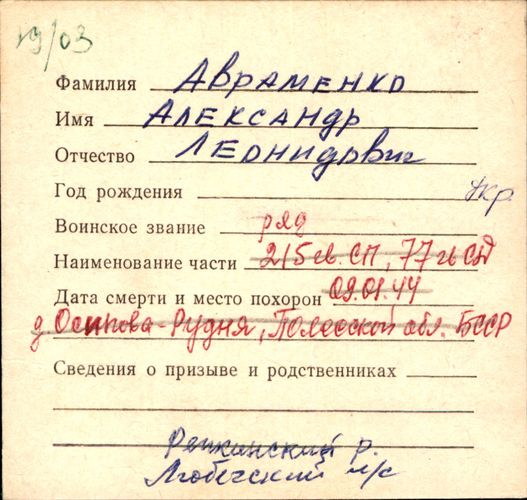 19/03
Фамилия Авраменко
Имя Александр
Отчество Леонидович
Год рождения Укр.
Воинское звание ряд
Наименование части 215 гв СП, 77 гв СД
Дата смерти и место похорон 09.01.44
д Осипова-Рудня, Полесской обл. БССР
Сведения о призыве и родственниках
Репкинский р.
Любечский с/с